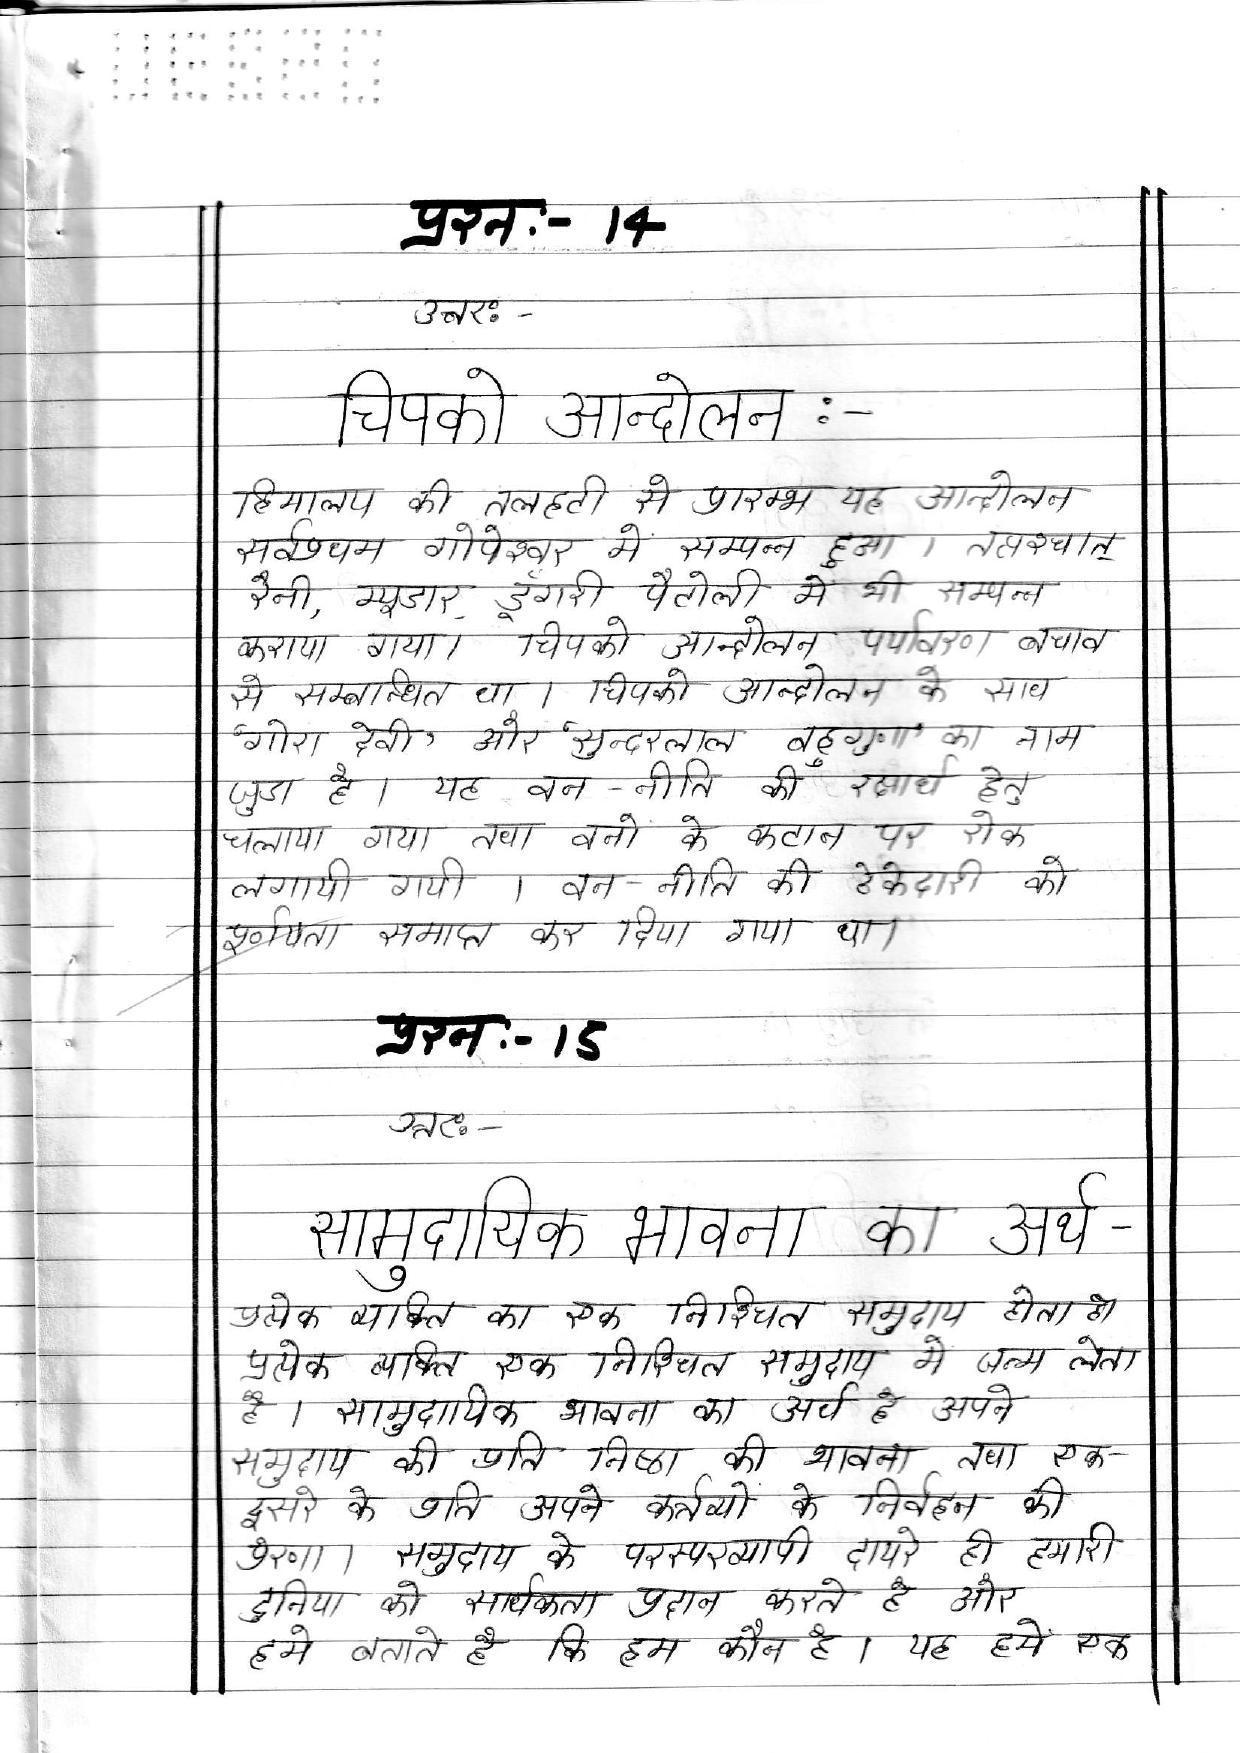 प्रश्न :- 14
उत्तरः -
चिपको आन्दोलन :-
हिमालय की तलहटी से प्रारम्भ यह आन्दोलन
सर्वप्रथम गोपेश्वर में सम्पन्न हुआ । तत्पश्चात्
रैनी, म्यूडार, डूँगरी पैटोली में भी सम्पन्न
कराया गया। चिपको आन्दोलन पर्यावरण बचाव
से सम्बान्धित था । चिपको आन्दोलन के साथ
'गोरा देवी' और 'सुन्दरलाल बहुगुणा' का नाम
जुडा है । यह वन - नीति की रक्षार्थ हेतु
चलाया गया तथा वनों के कटान पर रोक
लगायी गयी । वन - नीति की ठेकेदारी को
पूर्णयता समाप्त कर दिया गया था।
प्रश्न :- 15
उत्तरः -
सामुदायिक भावना का अर्थ -
प्रत्येक व्यक्ति का एक निश्चित समुदाय होता है।
प्रत्येक व्यक्ति एक निश्चित समुदाय मे जन्म लेता
है । सामुदायिक भावना का अर्थ है अपने
समुदाय की प्रति निष्ठा की भावना तथा एक-
दूसरे के प्रति अपने कर्तव्यों के निर्वहन की
प्रेरणा। समुदाय के परस्परव्यापी दायरे ही हमारी
दुनिया को सार्थकता प्रदान करते है और
हमे बताते है कि हम कौन है । यह हमें एक